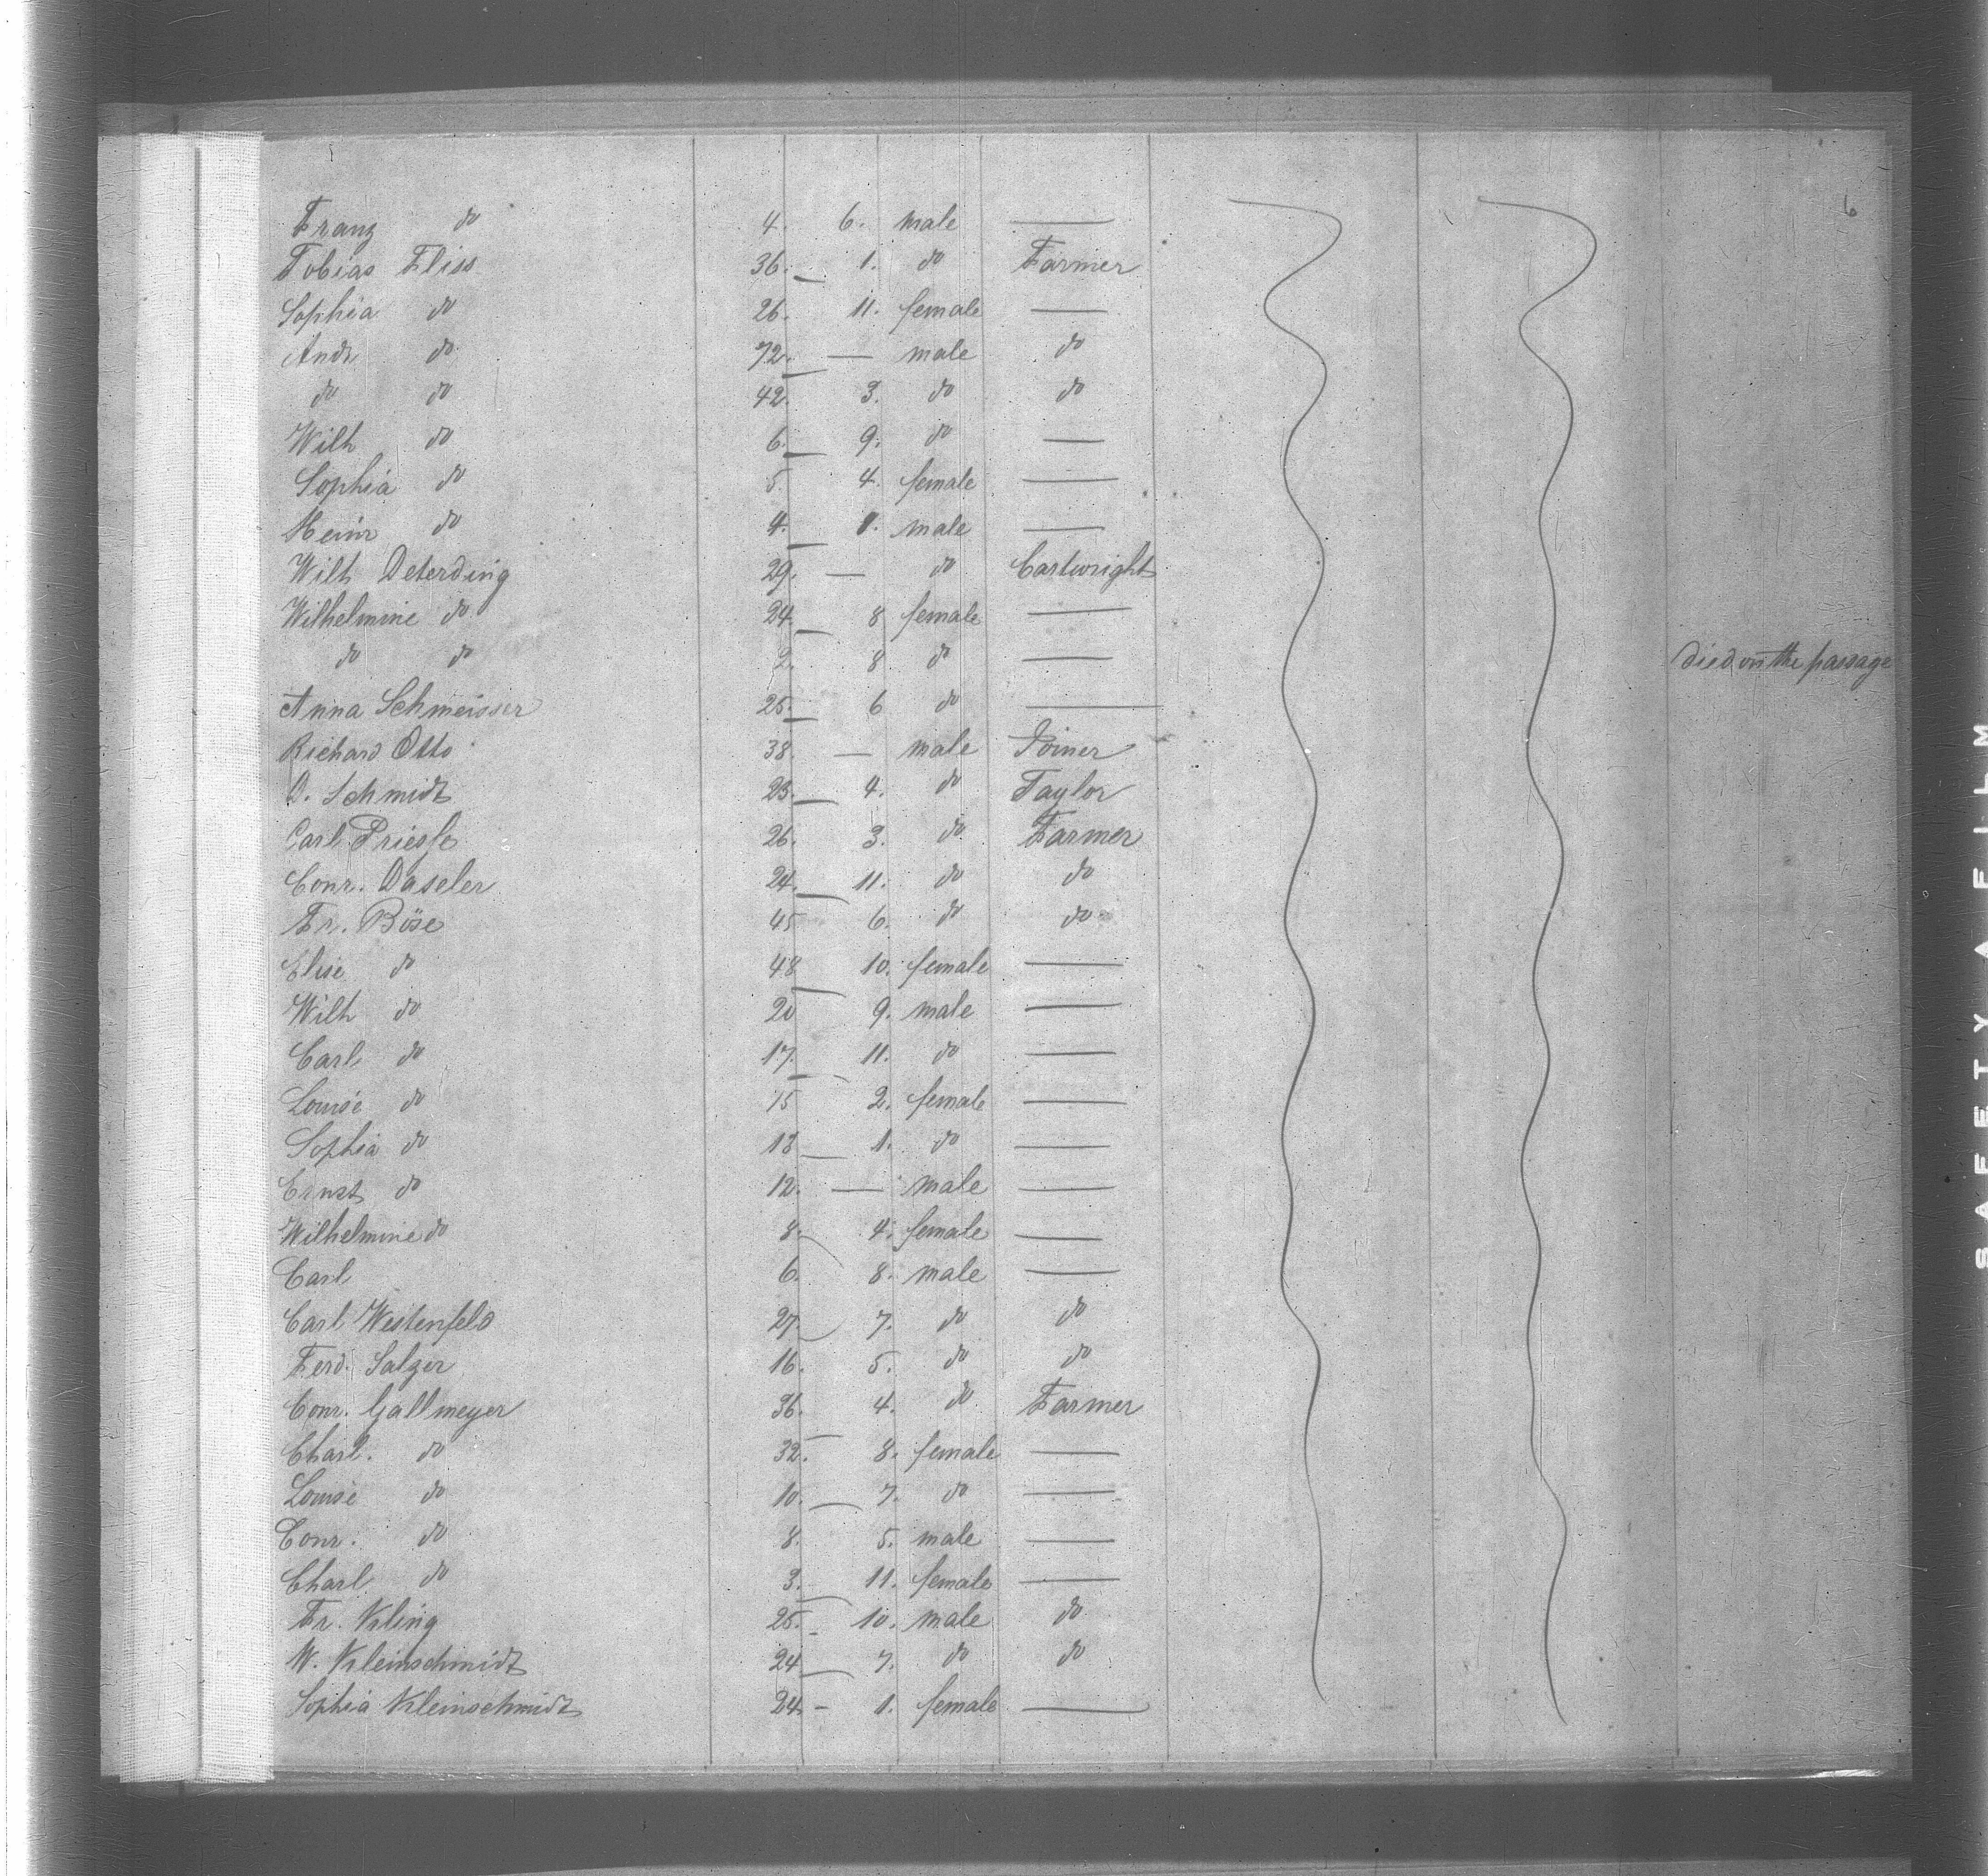 6
Franz do 4. 6. male —
Tobias Fliss 36. 1. do Farmer
Sophia do 26. 11. female —
Andr do 72. — male do
do do 42. 3. do do
Wilh do 6. 9. do —
Sophia do 5. 4. female —
Heinr do 4. 1. male —
Wilh Deterding 29. — do Cartwright
Wilhelmine do 24. 8 female —
do do 2. 8 do — died on the passage
Anna Schmeisser 25. 6 do —
Richard Otto 38. — male Joiner
D. Schmidt 23. 4. do Taylor
Carl 26. 3. do Farmer
Conr. Daseler 24. 11. do do
Fr. Böse 45 6. do do
Elise do 48 10. female —
Wilh do 20 9. male —
Carl do 17. 11. do —
Louise do 15 2. female —
Sophia do 13 1. do —
Ernst do 12. — male —
Wilhelmine do 8. 4. female —
Carl 6. 8. male —
Carl Westenfeld 27. 7. do do
Ferd. Salzer 16. 5. do do
Conr. Gallmeyer 36. 4. do Farmer
Charl. do 32. 8. female —
Louise do 10. 7. do —
Conr. do 8. 5. male —
Charl. do 3. 11. female —
Fr. Kling 25. 10. male do
W. Kleinschmidt 24 7. do do
Sophia Kleinschmidt 24 – 1. female —
SAFETY A FILM